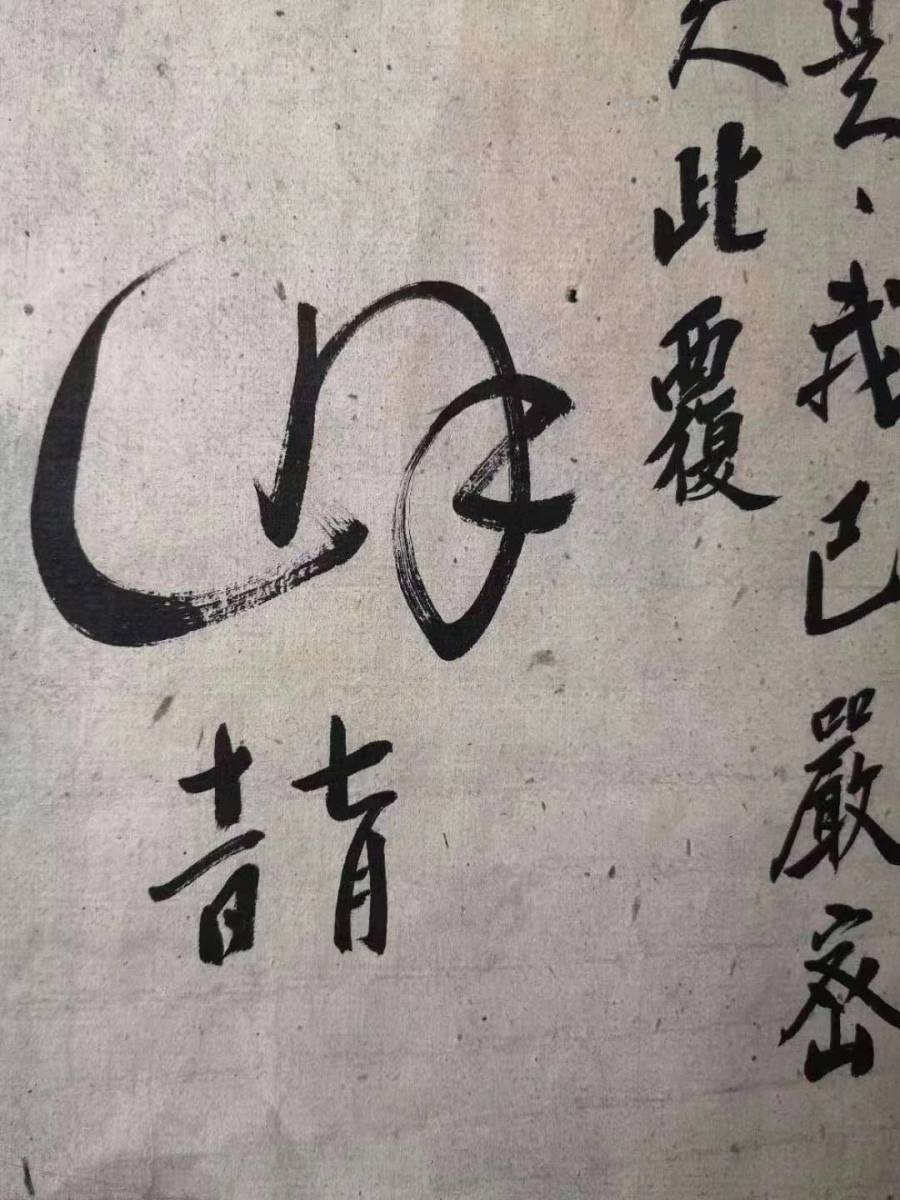 是、我已嚴密
此覆
七月
十一日